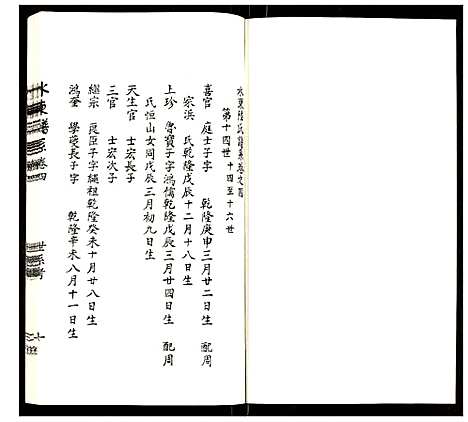 水東陸氏譜系卷之四
第十四世 十四至十六世
喜官 庭士子字 乾隆庚申三月廿二日生 配周
家浜 氏乾隆戊辰十二月十八日生
上珍 魯寶子字鴻儒乾隆戊辰三月廿四日生 配周
氏恒山女同戊辰三月初九日生
天生官 士宏長子
三官 士宏次子
繼宗 良臣子字繩祖乾隆癸未十月廿八日生
鴻奎 學夔長子字 乾隆辛未八月十一日生
水東譜系 卷四
世系考